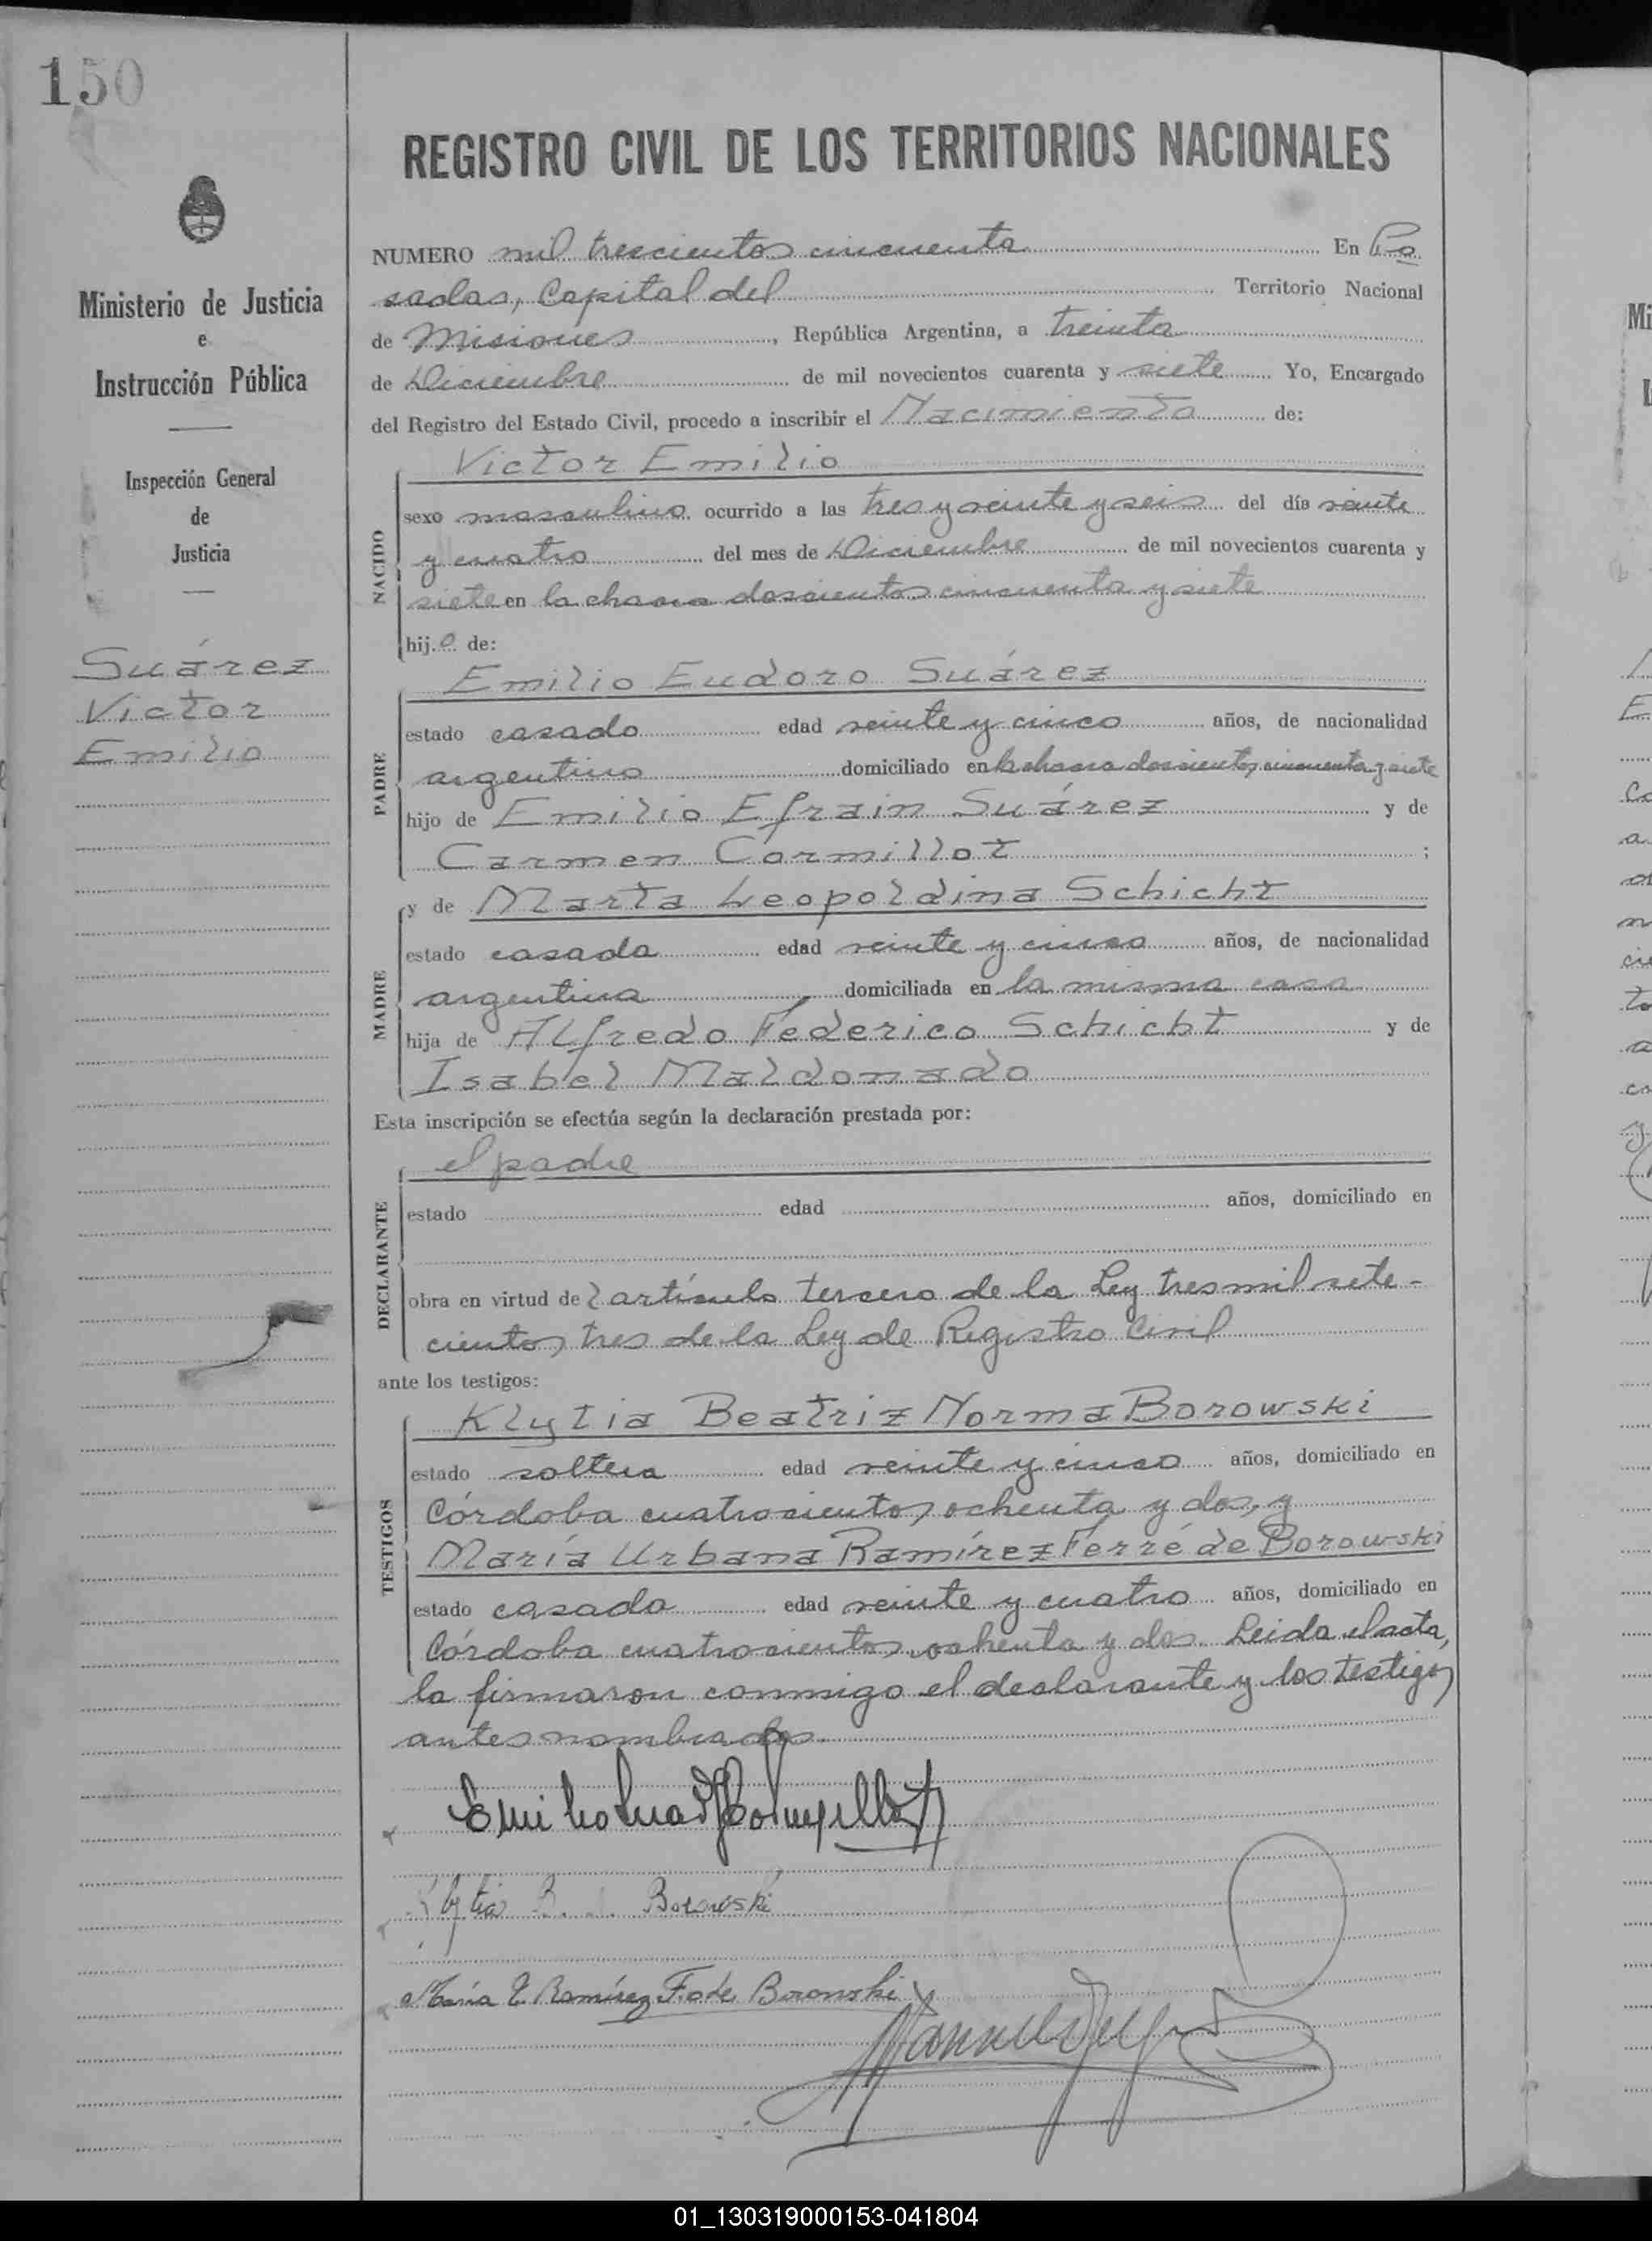 150
REGISTRO CIVIL DE LOS TERRITORIOS NACIONALES
Ministerio de Justicia
e
Instrucción Pública
Inspección General
de
Justicia
Suárez
Victor
Emilio
NUMERO mil trescientos cincuenta En Po
sadas, Capital del Territorio Nacional
de Misiones, República Argentina, a treinta
de Diciembre de mil novecientos cuarenta y siete Yo, Encargado
del Registro del Estado Civil, procedo a inscribir el Nacimiento de:
Victor Emilio
NACIDO
sexo masculino ocurrido a las tres y veinte y seis del día veinte
y cuatro del mes de Diciembre de mil novecientos cuarenta y
siete en la chacra doscientos cincuenta y siete
hijo de:
Emilio Eudoro Suárez
PADRE
estado casado edad veinte y cinco años, de nacionalidad
argentino domiciliado en la chacra doscientos cincuenta y siete
hijo de Emilio Efrain Suárez y de
Carmen Cormillot ;
y de Marta Leopoldina Schicht
MADRE
estado casada edad veinte y cinco años, de nacionalidad
argentina domiciliada en la misma casa
hija de Alfredo Federico Schicht y de
Isabel Maldonado
Esta inscripción se efectúa según la declaración prestada por:
el padre
DECLARANTE
estado edad años, domiciliado en
obra en virtud del artículo tercero de la Ley tres mil sete-
cientos tres de la Ley de Registro Civil
ante los testigos:
Klytia Beatriz Norma Borowski
TESTIGOS
estado soltera edad veinte y cinco años, domiciliado en
Córdoba cuatrocientos ochenta y dos, y
María Urbana Ramírez Ferré de Borowski
estado casada edad veinte y cuatro años, domiciliado en
Córdoba cuatrocientos ochenta y dos. Leida el acta,
la firmaron conmigo el declarante y los testigos
antes nombrados.
Klytia B. Borowski
María U. Ramírez F. de Borowski
01_130319000153-041804